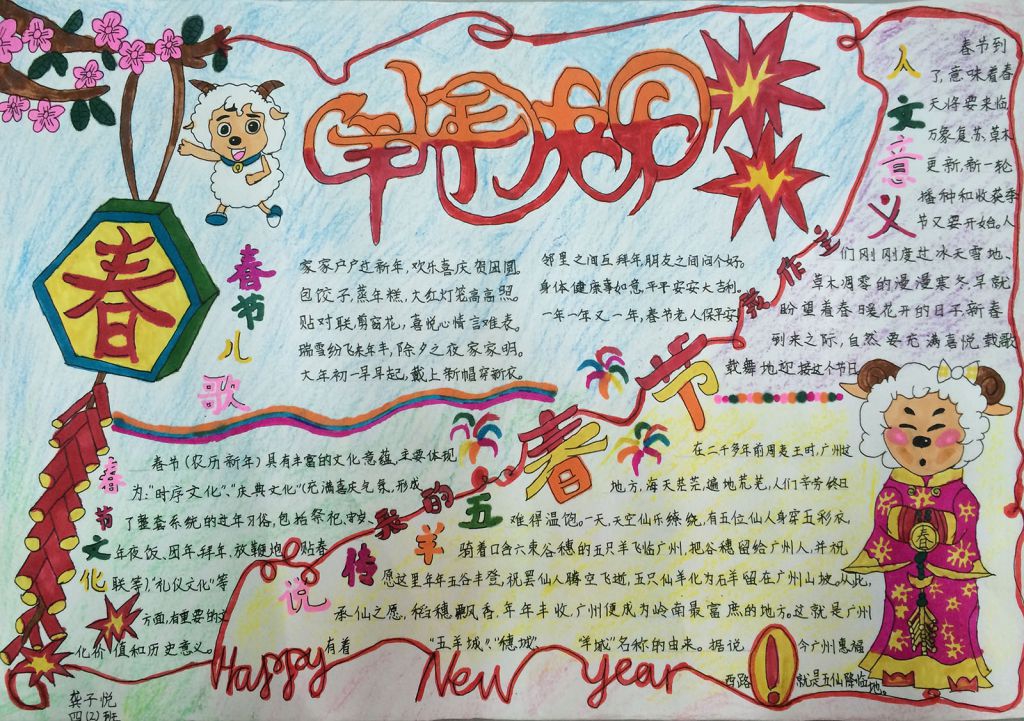 羊年
春
春节儿歌
家家户户过新年,欢乐喜庆贺团圆。
包饺子,蒸年糕,大红灯笼高高照。
贴对联,剪窗花,喜悦心情言难表。
瑞雪纷飞来年丰,除夕之夜家家明。
大年初一早早起,戴上新帽穿新衣。
邻里之间互拜年,朋友之间问个好。
身体健康事如意,平平安安大吉利。
一年一年又一年,春节老人保平安。
人文意义
春节到
了,意味着春
天将要来临,
万象复苏草木
更新,新一轮
播种和收获季
节又要开始。人
们刚刚度过冰天雪地、
草木凋零的漫漫寒冬早就
盼望着春暖花开的日子,新春
到来之际,自然要充满喜悦载歌
载舞地迎接这个节日。
春节
春节文化
春节(农历新年)具有丰富的文化意蕴,主要体现
为:"时序文化"、"庆典文化"(充满喜庆气氛,形成
了整套系统的过年习俗,包括祭祀、守岁、
年夜饭、团年,拜年,放鞭炮,贴春
联等)、"礼仪文化"等
方面,有重要的文
化价值和历史意义。
五羊的传说
在二千多年前周夷王时,广州这
地方,海天茫茫,遍地荒芜,人们辛劳终日
难得温饱。一天,天空仙乐缭绕,有五位仙人身穿五彩衣,
骑着口含六束谷穗的五只羊飞临广州,把谷穗留给广州人,并祝
愿这里年年五谷丰登,祝罢仙人腾空飞逝,五只仙羊化为石羊留在广州山坡。从此,
承仙之愿,稻穗飘香,年年丰收,广州便成为岭南最富庶的地方。这就是广州
有着"五羊城"、"穗城"、"羊城"名称的由来。据说今广州惠福
西路就是五仙降临地。
春
Happy New year!
龚子悦
四(2)班